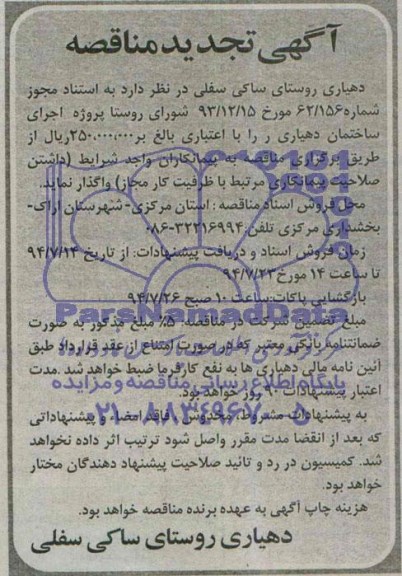 آگهی تجدید مناقصه
دهیاری روستای ساکی سفلی در نظر دارد به استناد مجوز
شماره ۶۲/۱۵۶ مورخ ۹۳/۱۲/۱۵ شورای روستا پروژه اجرای
ساختمان دهیاری ر را با اعتباری بالغ بر ۲۵۰،۰۰۰،۰۰۰ ریال از
طریق برگزاری مناقصه به پیمانکاران واجد شرایط (داشتن
صلاحیت پیمانکاری مرتبط با ظرفیت کار مجاز) واگذار نماید.
محل فروش اسناد مناقصه: استان مرکزی- شهرستان اراک-
بخشداری مرکزی تلفن: ۳۲۲۱۶۹۹۴-۰۸۶
زمان فروش اسناد و دریافت پیشنهادات: از تاریخ ۹۴/۷/۱۴
تا ساعت ۱۴ مورخ ۹۴/۷/۲۳
بازگشایی پاکات: ساعت ۱۰ صبح ۹۴/۷/۲۶
ParsNamadData
مبلغ تضمین شرکت در مناقصه: ۵٪ مبلغ مذکور به صورت
ضمانتنامه بانکی معتبر که در صورت امتناع از عقد قرارداد طبق
آئین نامه مالی دهیاری ها به نفع کارفرما ضبط خواهد شد. مدت
اعتبار پیشنهادات ۹۰ روز خواهد بود.
پایگاه اطلاع رسانی مناقصه و مزایده
به پیشنهادات مشروط، مخدوش، فاقد امضاء و پیشنهاداتی
۰۲۱-۸۸۳۴۹۶۷۰
که بعد از انقضا مدت مقرر واصل شود ترتیب اثر داده نخواهد
شد. کمیسیون در رد و تائید صلاحیت پیشنهاد دهندگان مختار
خواهد بود.
هزینه چاپ آگهی به عهده برنده مناقصه خواهد بود.
دهیاری روستای ساکی سفلی